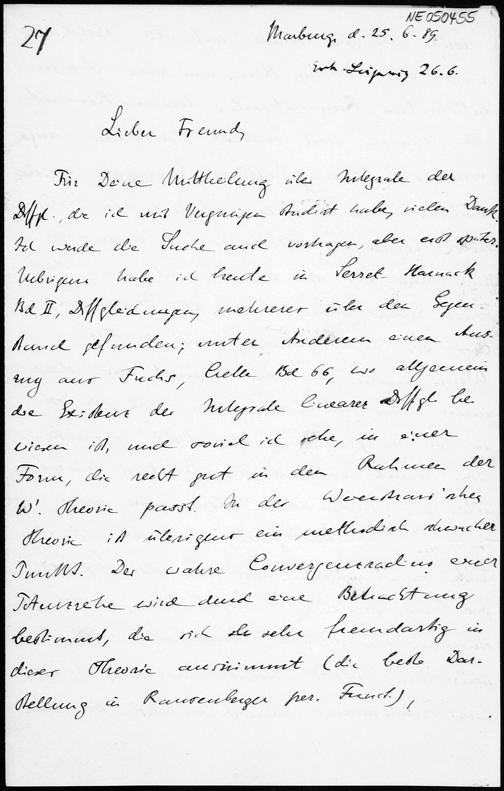 NE050455
27
Marburg d. 25. 6. 89.
Erh. Leipzig 26. 6.
Lieber Freund,
Für Deine Mittheilung über Integrale der
Dffgl., die ich mit Vergnügen studirt habe, vielen Dank.
Ich werde die Sache auch vortragen, aber erst später.
Uebrigens habe ich heute in Serret-Harnack
Bd II, Dffgleichungen, mehreres über den Gegen-
stand gefunden; unter Anderem einen Aus-
zug aus Fuchs, Crelle Bd 66, wo allgemein
die Existenz der Integrale linearer Dffgl be
wiesen ist, und soviel ich sehe, in einer
Form, die recht gut in den Rahmen der
W'. Theorie passt. In der Weierstrass'schen
Theorie ist übrigens ein methodisch schwacher
Punkt. Der wahre Convergenzradius einer
Potenzreihe wird durch eine Betrachtung
bestimmt, die sich sehr fremdartig in
dieser Theorie ausnimmt (die beste Dar-
stellung in Rausenberger per. Funct.),